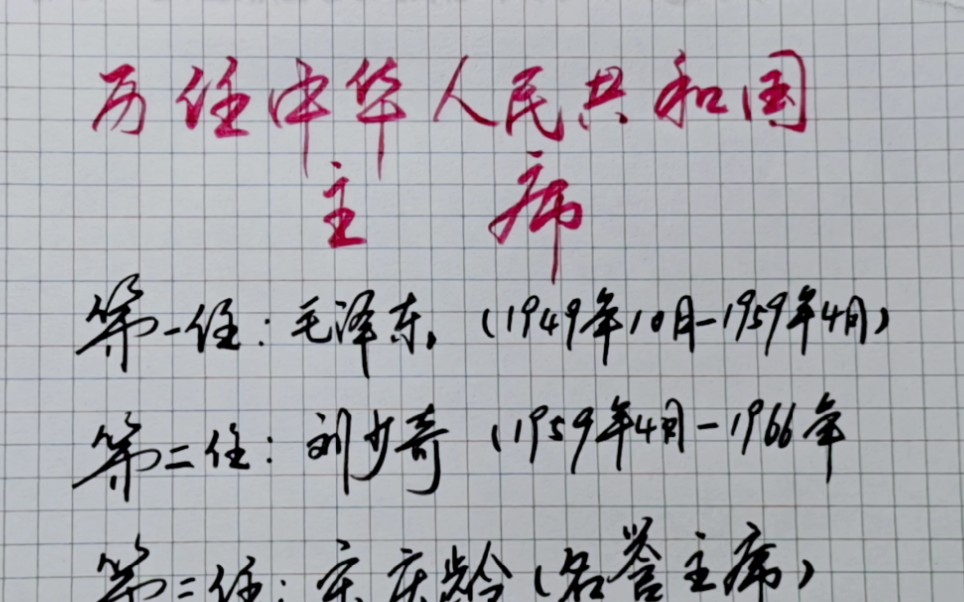 历任中华人民共和国
主席
第一任:毛泽东。(1949年10月-1959年4月)
第二任:刘少奇(1959年4月-1966年
第三任:宋庆龄(名誉主席)